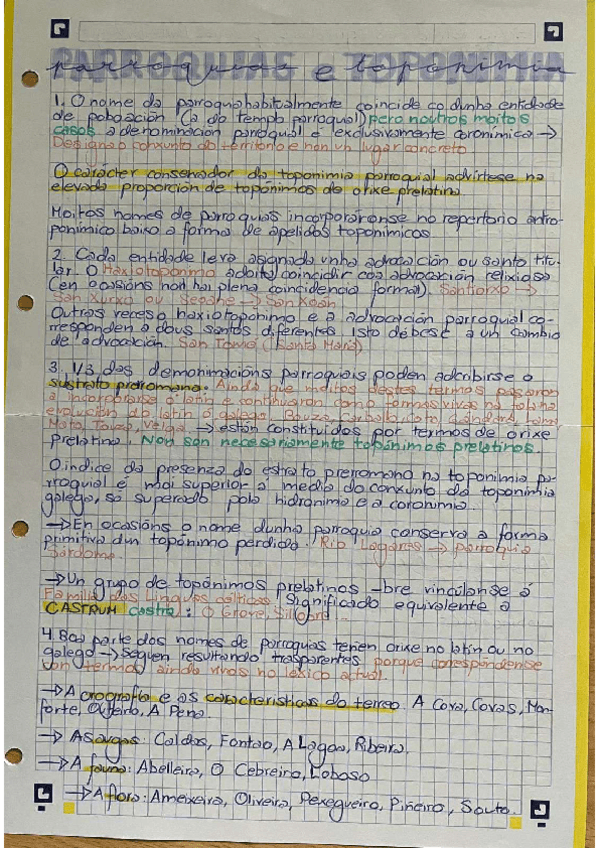 PARROQUIAS e TOPONIMIA
parroquias e toponimia
1. O nome da parroquia habitualmente coincide co dunha entidade
de poboación (a do templo parroquial) pero noutros moitos
casos a denominación parroquial é exclusivamente coronímica →
Designa o conxunto do territorio e non un lugar concreto
O carácter conservador da toponimia parroquial advírtese na
elevada proporción de topónimos de orixe prelatina.
Moitos nomes de parroquias incorporáronse no repertorio antro-
ponímico baixo a forma de apelidos toponímicos
2. Cada entidade leva asignada unha advocación ou santo titu-
lar. O Haxiotopónimo adoita coincidir coa advocación relixiosa
(en ocasións non hai plena coincidencia formal). Santiorxo →
San Xurxo ou Seoane → San Xoán
Outras veces o haxiotopónimo e a advocación parroquial co-
rresponden a dous santos diferentes. Isto débese a un cambio
de advocación. San Tomé (Santa María)
3. 1/3 das denominacións parroquiais poden adcribirse o
sustrato prerromano. Ainda que moitos destes termos pasaron
a incorporarse ó latín e continuaron como formas vivas na
evolución do latín ó galego. Bouza, Carballo,
Mato, Touza, Veiga → están constituídos por termos de orixe
prelatina. Non son necesariamente topónimos prelatinos.
O índice da presenza do estrato prerromano na toponimia pa-
rroquial é moi superior á media do conxunto da toponimia
galega, só superado pola hidronimia e a coronimia.
→ En ocasións o nome dunha parroquia conserva a forma
primitiva dun topónimo perdido. Río Lagares → parroquia
Sárdoma.
→ Un grupo de topónimos prelatinos -bre vincúlanse á
Familia das linguas célticas significado equivalente a
CASTRUM castro: O Grove,
4. Boa parte dos nomes de parroquias teñen orixe no latín ou no
galego → seguen resultando trasparentes porque correspóndense
con termos ainda vivos no léxico actual.
→ A orografía e as características do terreo. A Cova, Covas, Mon-
forte, Outeiro, A Pena.
→ As augas: Caldas, Fontao, A Lagoa, Ribeira.
→ A fauna: Abelleira, O Cebreiro, Loboso
→ A flora: Ameixeira, Oliveira, Pexegueiro, Piñeiro, Souto.